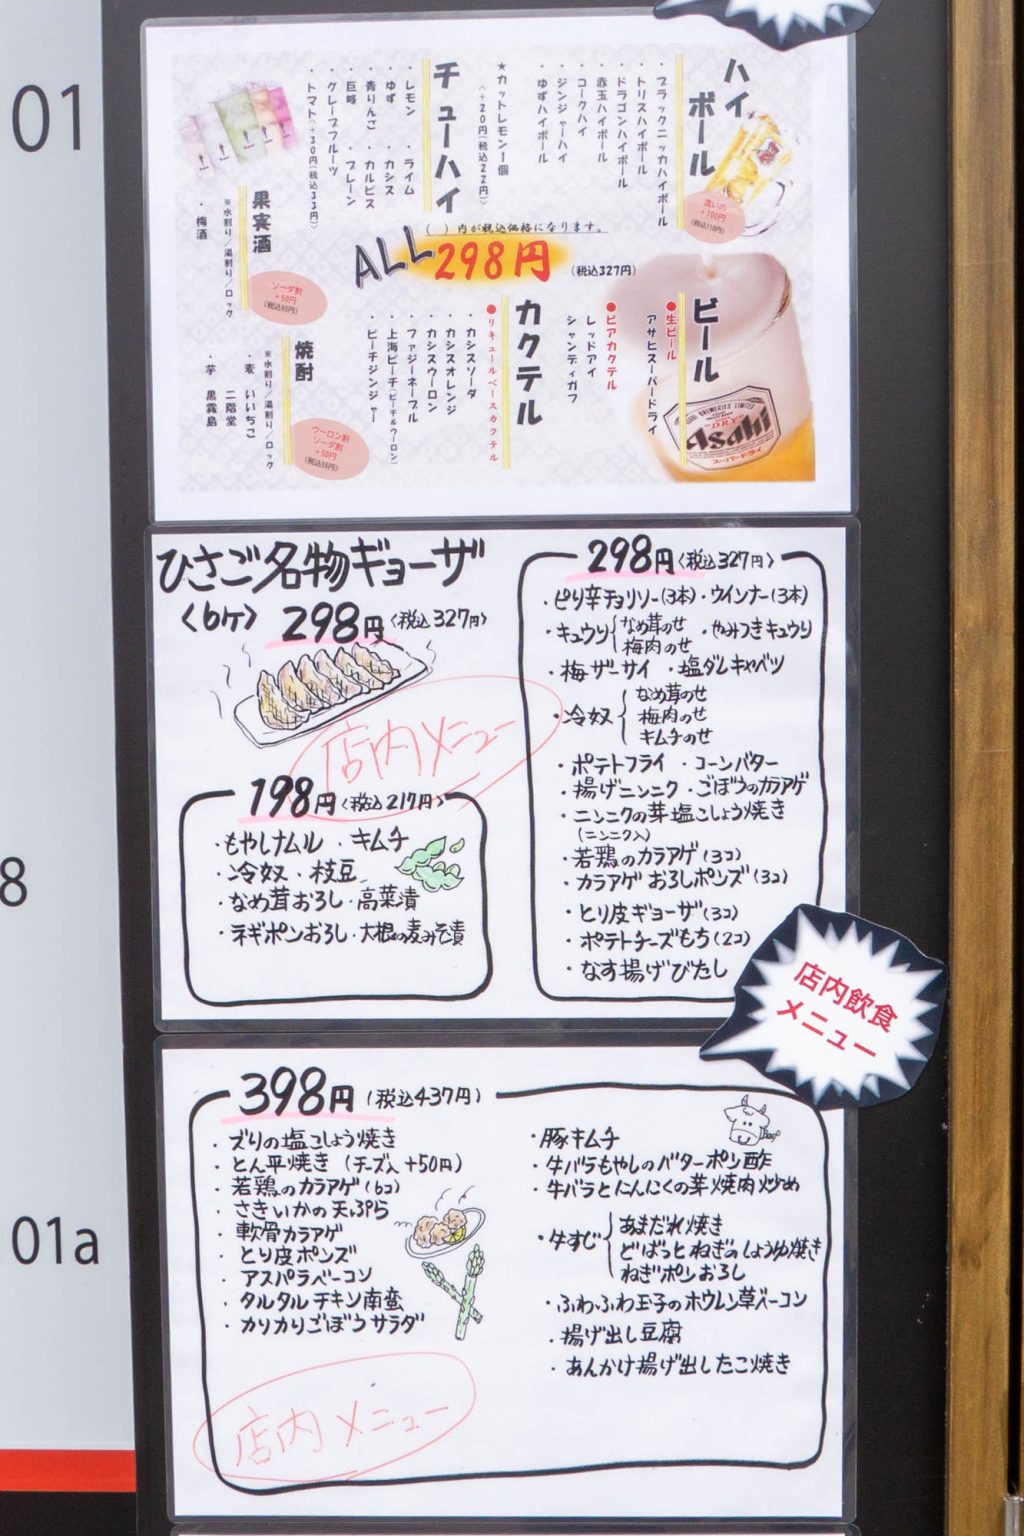 01
8
01a
ハイボール
・ブラックニッカハイボール
・トリスハイボール
・ドラゴンハイボール
・赤玉ハイボール
・コークハイ
・ジンジャーハイ
・ゆずハイボール
★カットレモン1個
(+20円(税込22円))
濃いめ
+100円
(税込110円)
チューハイ
・レモン ・ライム
・ゆず ・カシス
・青りんご ・カルピス
・巨峰 ・プレーン
・グレープフルーツ
・トマト(+30円(税込33円))
果実酒
※水割り/湯割り/ロック
・梅酒
ソーダ割
+50円
(税込55円)
( )内が税込価格になります。
ALL 298円 (税込327円)
ビール
●生ビール
アサヒスーパードライ
●ビアカクテル
レッドアイ
シャンディガフ
Asahi
スーパードライ
カクテル
●リキュールベースカクテル
・カシスソーダ
・カシスオレンジ
・カシスウーロン
・ファジーネーブル
・上海ピーチ(ピーチ&ウーロン)
・ピーチジンジャー
焼酎
※水割り/湯割り/ロック
・麦 いいちこ
二階堂
・芋 黒霧島
ウーロン割
ソーダ割
+50円
(税込55円)
ひさご名物ギョーザ
〈6ケ〉 298円〈税込327円〉
店内メニュー
198円〈税込217円〉
・もやしナムル ・キムチ
・冷奴 ・枝豆
・なめ茸おろし ・高菜漬
・ネギポンおろし ・大根の麦みそ漬
298円〈税込327円〉
・ピリ辛チョリソー(3本) ・ウインナー(3本)
・キュウリ なめ茸のせ 梅肉のせ ・やみつきキュウリ
・梅ザーサイ ・塩ダレキャベツ
・冷奴 なめ茸のせ
梅肉のせ
キムチのせ
・ポテトフライ ・コーンバター
・揚げニンニク ・ごぼうのカラアゲ
・ニンニクの芽塩こしょう焼き
(ニンニク入)
・若鶏のカラアゲ(3コ)
・カラアゲおろしポンズ(3コ)
・とり皮ギョーザ(3コ)
・ポテトチーズもち(2コ)
・なす揚げびたし
店内飲食
メニュー
398円(税込437円)
・ズリの塩こしょう焼き
・とん平焼き (チーズ入+50円)
・若鶏のカラアゲ(6コ)
・さきいかの天ぷら
・軟骨カラアゲ
・とり皮ポンズ
・アスパラベーコン
・タルタルチキン南蛮
・カリカリごぼうサラダ
・豚キムチ
・牛バラもやしのバターポン酢
・牛バラとにんにくの芽焼肉炒め
・牛すじ あまだれ焼き
どばっとねぎのしょうゆ焼き
ねぎポンおろし
・ふわふわ玉子のホウレン草ベーコン
・揚げ出し豆腐
・あんかけ揚げ出したこ焼き
店内メニュー